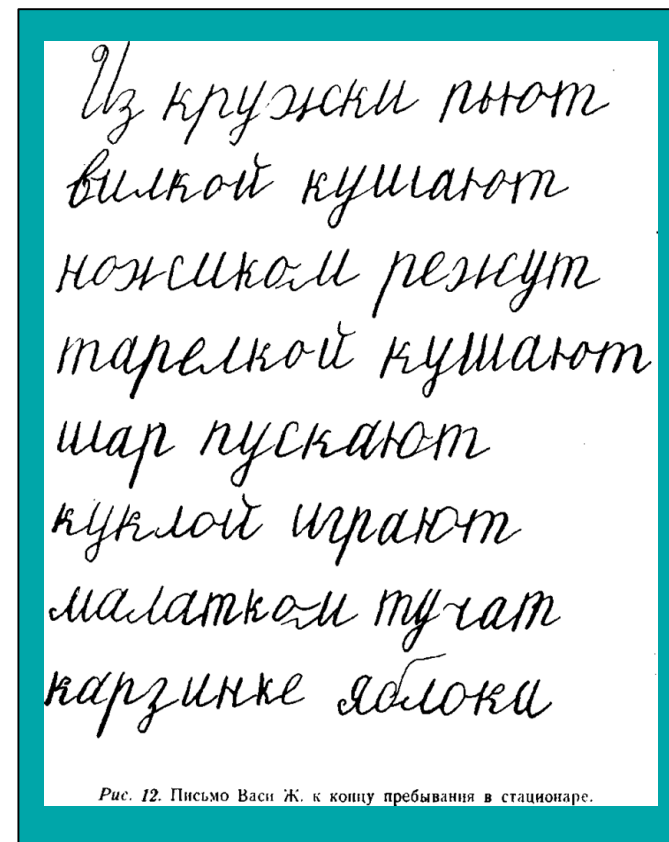 Из кружки пьют
вилкой кушают
ножиком режут
тарелкой кушают
шар пускают
куклой играют
малатком тучат
карзинке яблоки
Рис. 12. Письмо Васи Ж. к концу пребывания в стационаре.